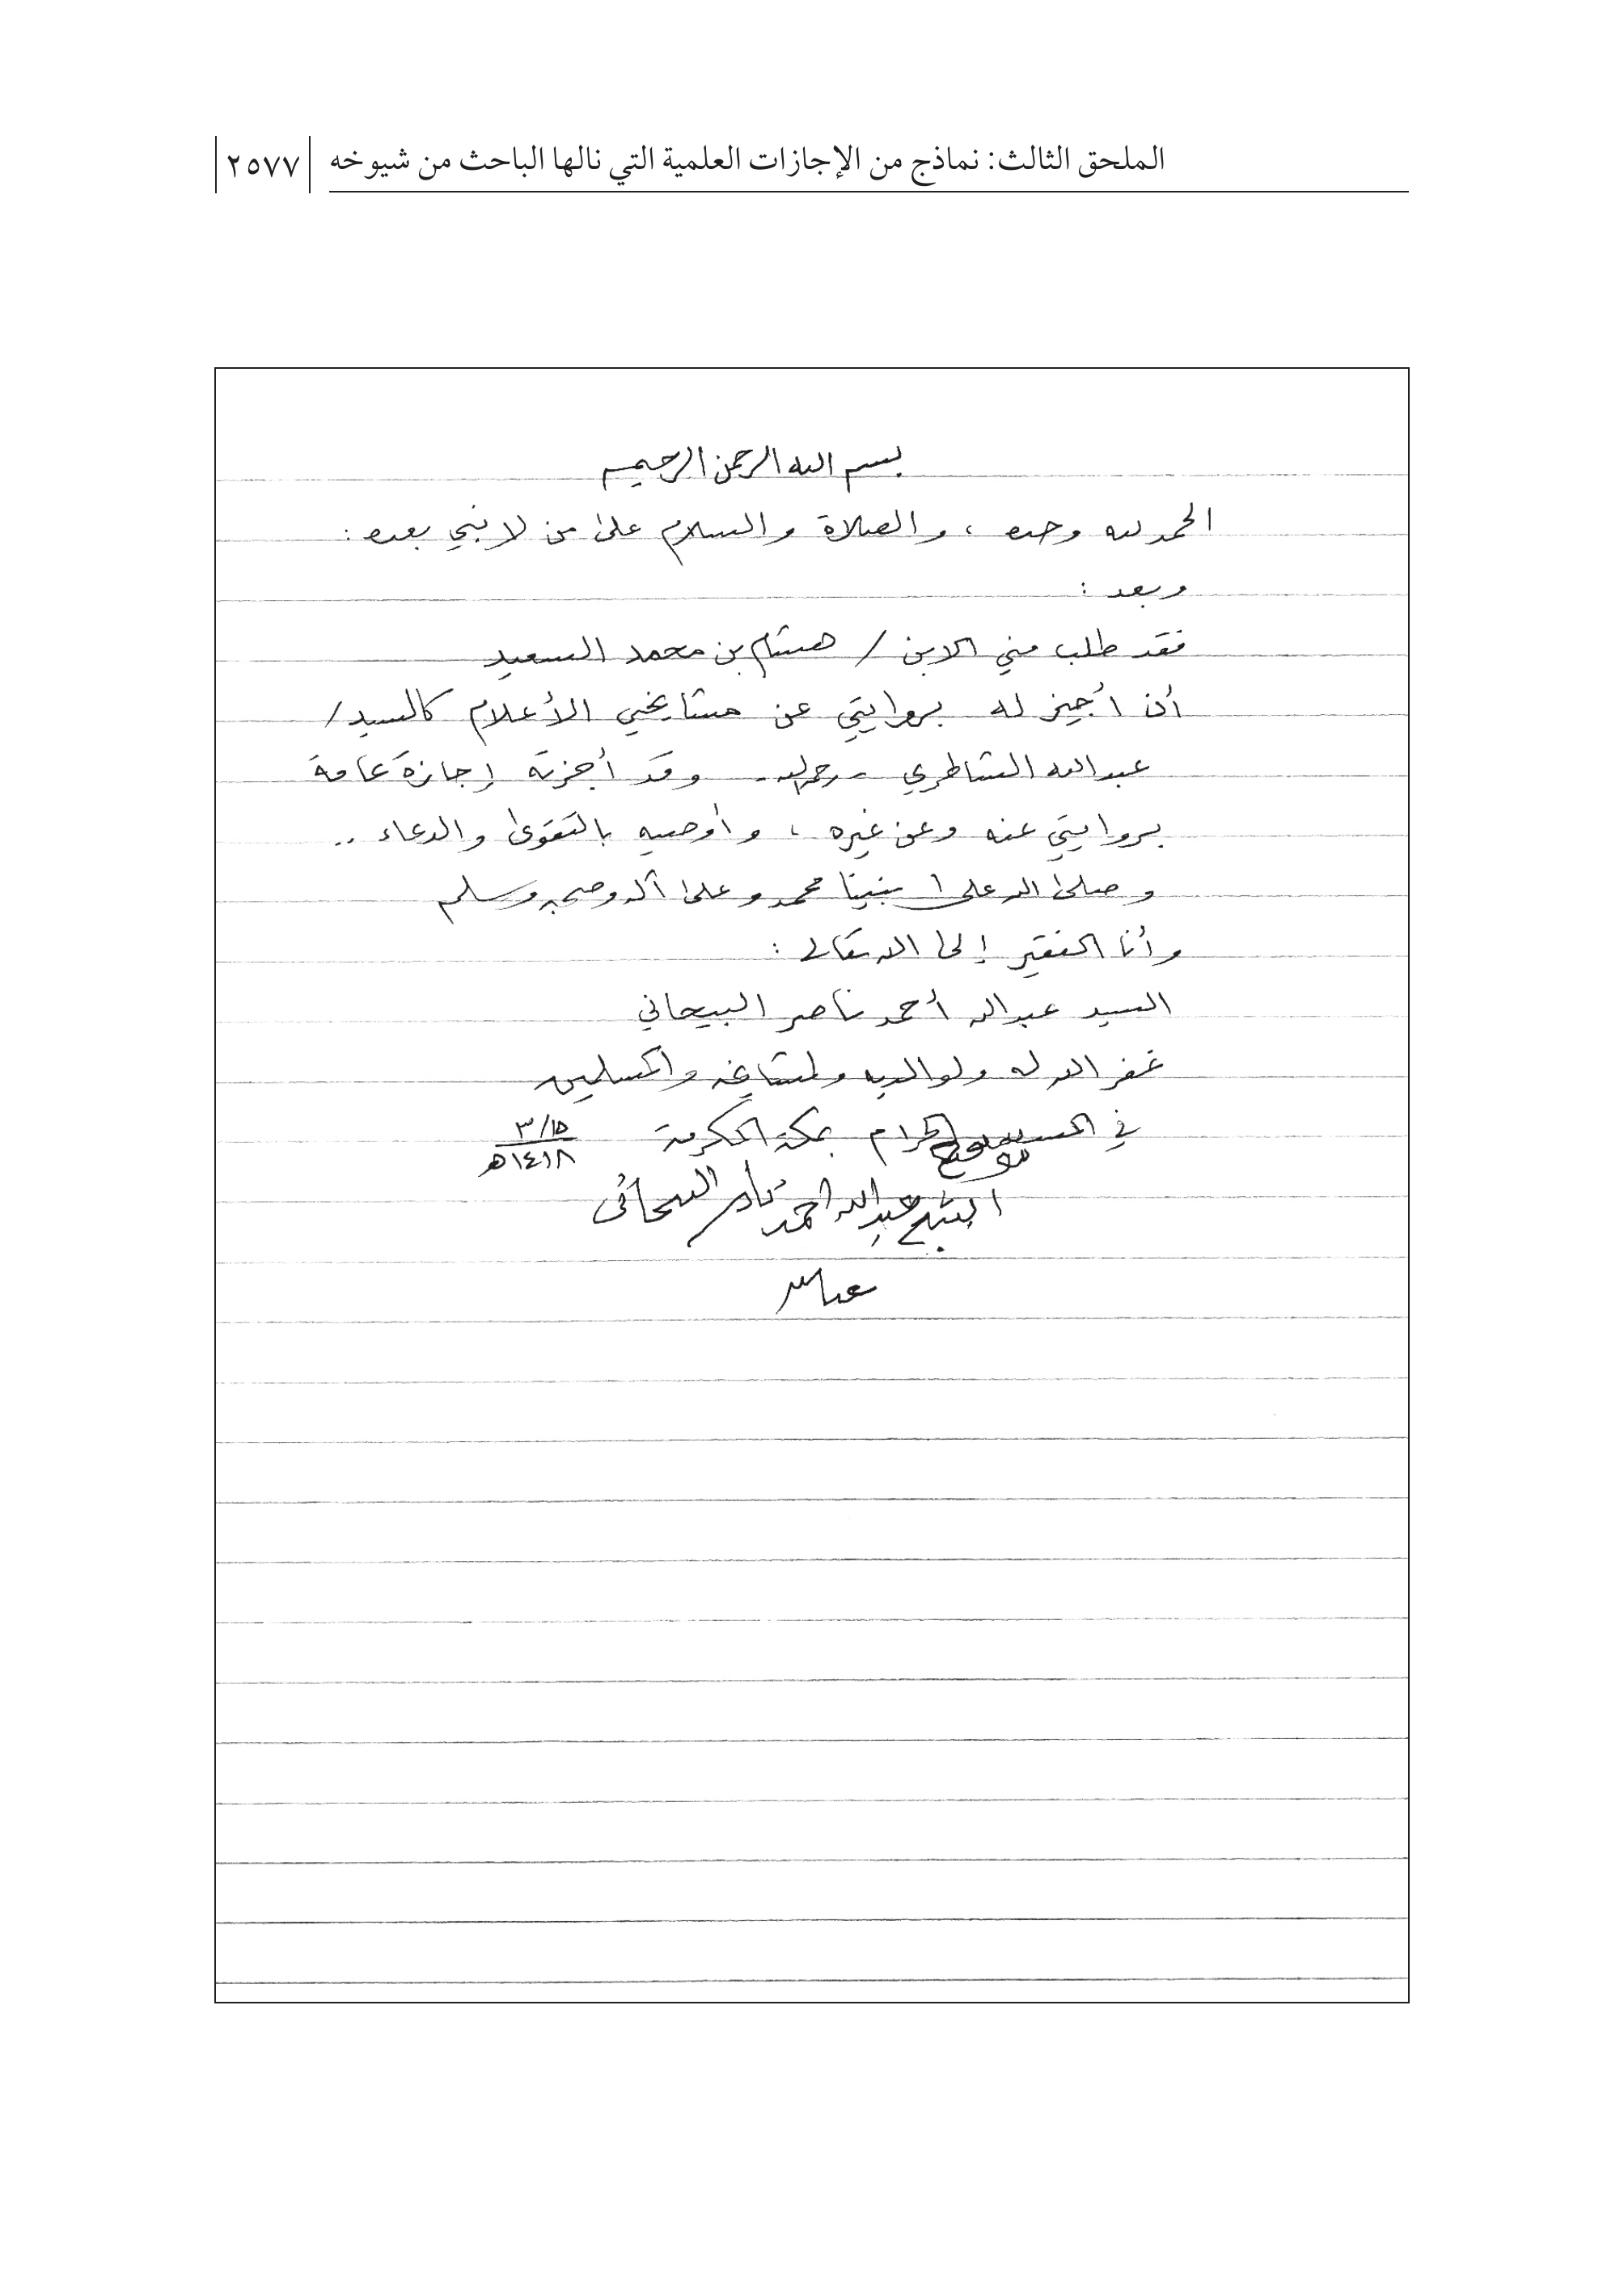 الملحق الثالث: نماذج من الإجازات العلمية التي نالها الباحث من شيوخه ٢٥٧٧
بسم الله الرحمن الرحيم
الحمد لله وحده ، والصلاة والسلام على من لا نبي بعده :
وبعد :
فقد طلب مني الابن / هشام بن محمد السعيد
أن أجيز له بروايتي عن مشايخي الأعلام كالسيد /
عبدالله الشاطري - رحمه الله - وقد أجزته إجازة عامة
بروايتي عنه وعن غيره ، وأوصيه بالتقوى والدعاء ..
وصلى الله على نبينا محمد وعلى آله وصحبه وسلم
وأنا الفقير إلى الله تعالى :
السيد عبدالله أحمد ناصر البيحاني
غفر الله له ولوالديه ولمشايخه والمسلمين
في المسجد الحرام بمكة المكرمة ١٥/٣
١٤١٨هـ
الشيخ عبدالله احمد ناصر البيحاني